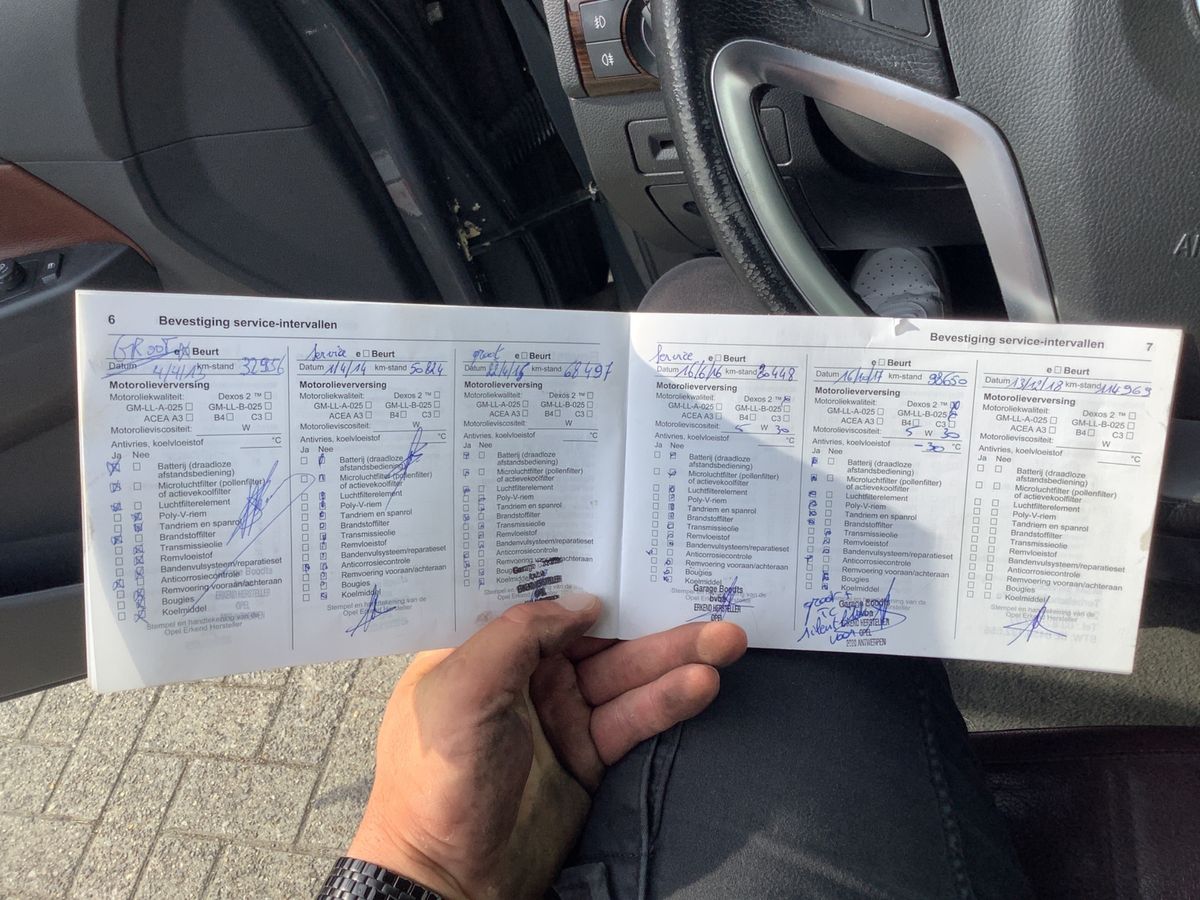 6 Bevestiging service-intervallen
GROOT e Beurt
Datum 4/4/13 km-stand 32956
Motorolieverversing
Motoroliekwaliteit: Dexos 2 ™
GM-LL-A-025 GM-LL-B-025
ACEA A3 B4 C3
Motorolieviscositeit: W
Antivries, koelvloeistof °C
Ja Nee
Batterij (draadloze
afstandsbediening)
Microluchtfilter (pollenfilter)
of actievekoolfilter
Luchtfilterelement
Poly-V-riem
Tandriem en spanrol
Brandstoffilter
Transmissieolie
Remvloeistof
Bandenvulsysteem/reparatieset
Anticorrosiecontrole
Remvoering vooraan/achteraan
Bougies
Koelmiddel
Stempel en handtekening van de
Opel Erkend Hersteller
Service e Beurt
Datum 1/4/14 km-stand
Motorolieverversing
Motoroliekwaliteit: Dexos 2 ™
GM-LL-A-025 GM-LL-B-025
ACEA A3 B4 C3
Motorolieviscositeit: W
Antivries, koelvloeistof °C
Ja Nee
Batterij (draadloze
afstandsbediening)
Microluchtfilter (pollenfilter)
of actievekoolfilter
Luchtfilterelement
Poly-V-riem
Tandriem en spanrol
Brandstoffilter
Transmissieolie
Remvloeistof
Bandenvulsysteem/reparatieset
Anticorrosiecontrole
Remvoering vooraan/achteraan
Bougies
Koelmiddel
Stempel en handtekening van de
Opel Erkend Hersteller
groot e Beurt
Datum km-stand 68497
Motorolieverversing
Motoroliekwaliteit: Dexos 2 ™
GM-LL-A-025 GM-LL-B-025
ACEA A3 B4 C3
Motorolieviscositeit: W
Antivries, koelvloeistof °C
Ja Nee
Batterij (draadloze
afstandsbediening)
Microluchtfilter (pollenfilter)
of actievekoolfilter
Luchtfilterelement
Poly-V-riem
Tandriem en spanrol
Brandstoffilter
Transmissieolie
Remvloeistof
Bandenvulsysteem/reparatieset
Anticorrosiecontrole
Remvoering vooraan/achteraan
Bougies
Koelmiddel
ERKEND HERSTELLER
OPEL
Bevestiging service-intervallen 7
Service e Beurt
Datum 16/6/16 km-stand 80448
Motorolieverversing
Motoroliekwaliteit: Dexos 2 ™
GM-LL-A-025 GM-LL-B-025
ACEA A3 B4 C3
Motorolieviscositeit: 5 W 30
Antivries, koelvloeistof °C
Ja Nee
Batterij (draadloze
afstandsbediening)
Microluchtfilter (pollenfilter)
of actievekoolfilter
Luchtfilterelement
Poly-V-riem
Tandriem en spanrol
Brandstoffilter
Transmissieolie
Remvloeistof
Bandenvulsysteem/reparatieset
Anticorrosiecontrole
Remvoering vooraan/achteraan
Bougies
Koelmiddel
Garage Boodts
bvba
ERKEND HERSTELLER
OPEL
e Beurt
Datum km-stand 98650
Motorolieverversing
Motoroliekwaliteit: Dexos 2 ™
GM-LL-A-025 GM-LL-B-025
ACEA A3 B4 C3
Motorolieviscositeit: 5 W 30
Antivries, koelvloeistof -30 °C
Ja Nee
Batterij (draadloze
afstandsbediening)
Microluchtfilter (pollenfilter)
of actievekoolfilter
Luchtfilterelement
Poly-V-riem
Tandriem en spanrol
Brandstoffilter
Transmissieolie
Remvloeistof
Bandenvulsysteem/reparatieset
Anticorrosiecontrole
Remvoering vooraan/achteraan
Bougies
Koelmiddel
groot +
Garage Boodts
ERKEND HERSTELLER
voor OPEL
2020 ANTWERPEN
e Beurt
Datum 13/12/18 km-stand 114969
Motorolieverversing
Motoroliekwaliteit: Dexos 2 ™
GM-LL-A-025 GM-LL-B-025
ACEA A3 B4 C3
Motorolieviscositeit: W
Antivries, koelvloeistof °C
Ja Nee
Batterij (draadloze
afstandsbediening)
Microluchtfilter (pollenfilter)
of actievekoolfilter
Luchtfilterelement
Poly-V-riem
Tandriem en spanrol
Brandstoffilter
Transmissieolie
Remvloeistof
Bandenvulsysteem/reparatieset
Anticorrosiecontrole
Remvoering vooraan/achteraan
Bougies
Koelmiddel
Stempel en handtekening van de
Opel Erkend Hersteller